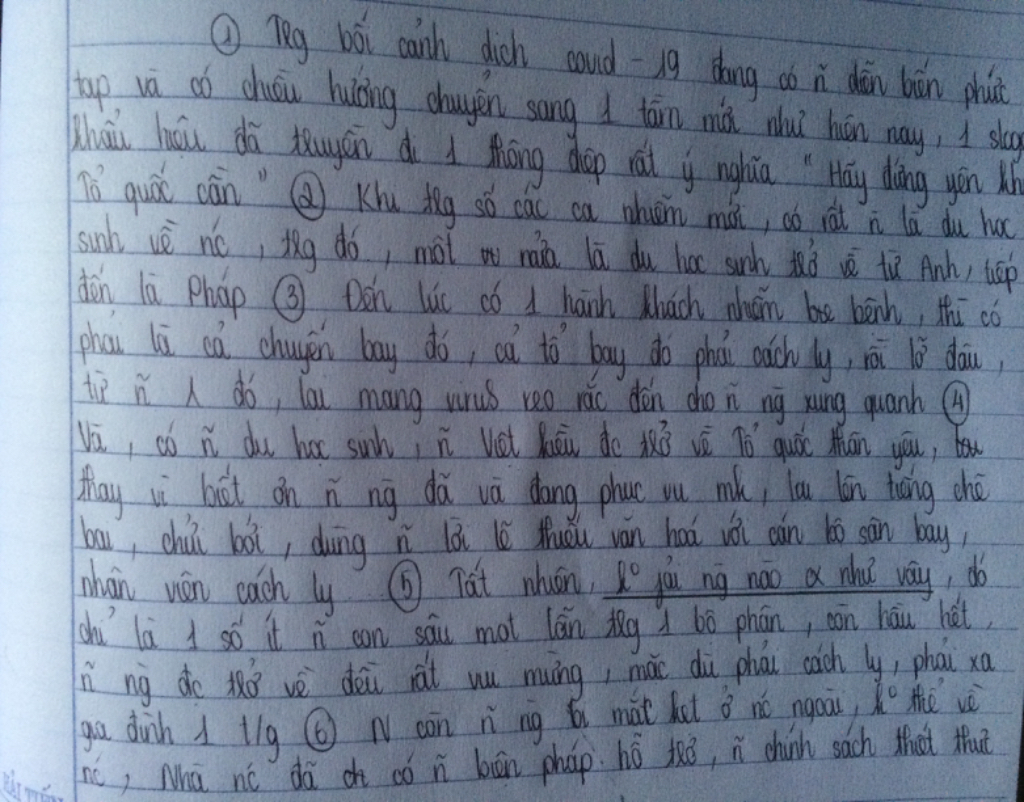 ① Trg bối cảnh dịch covid - 19 đang có ñ diễn biến phức
tạp và có chiều hướng chuyển sang 1 tầm mới như hiện nay, 1 slog
khẩu hiệu đã truyền đi 1 thông điệp rất ý nghĩa " Hãy đứng yên kh
Tổ quốc cần " ② Khi trg số các ca nhiễm mới, có rất ñ là du học
sinh về nc, trg đó, một nửa là du học sinh trở về từ Anh, tiếp
đến là Pháp ③ Đến lúc có 1 hành khách nhiễm bệnh, thì có
phải là cả chuyến bay đó, cả tổ bay đó phải cách ly, rồi lỡ đâu,
từ ñ 1 đó, lại mang virus reo rắc đến cho ñ ng xung quanh ④
Và, có ñ du học sinh, ñ Việt kiều đc trở về Tổ quốc thân yêu,
thay vì biết ơn ñ ng đã và đang phục vụ mk, lại lên tiếng chê
bai, chửi bới, dùng ñ lời lẽ thiếu văn hoá với cán bộ sân bay,
nhân viên cách ly ⑤ Tất nhiên, k° fải ng nào α như vậy, đó
chỉ là 1 số ít ñ con sâu mọt lẫn trg 1 bộ phận, còn hầu hết
ñ ng đc trở về đều rất vui mừng, mặc dù phải cách ly, phải xa
gia đình 1 t/g ⑥ N còn ñ ng bị mắt kẹt ở nc ngoài, k° thể về
nc, Nhà nc đã có ñ biện pháp hỗ trợ, ñ chính sách thiết thực
HẢI TIẾN